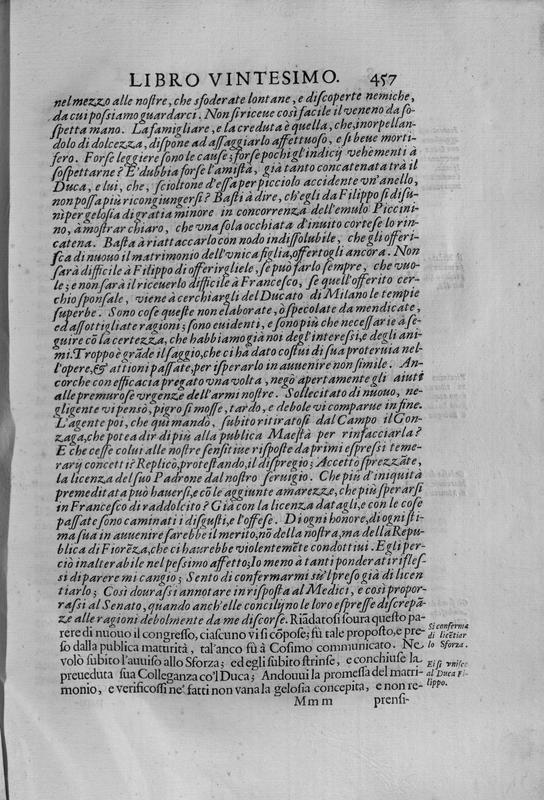 LIBRO VINTESIMO. 457
nel mezzo alle nostre, che sfoderate lontane, e discoperte nemiche,
da cui possiamo guardarci. Non si riceue così facile il veneno da so-
spetta mano. La famigliare, e la creduta è quella, che, inorpellan-
dolo di dolcezza, dispone ad assaggiarlo affettuoso, e si beue morti-
fero. Forse leggiere sono le cause; forse pochi gl'indicij vehementi à
sospettarne? E' dubbia forse l'amistà, già tanto concatenata trà il
Duca, e lui, che, scioltone d'essa per picciolo accidente vn'anello,
non possa più ricongiungersi? Basti à dire, ch'egli da Filippo si disu-
nì per gelosia di gratia minore in concorrenza dell'emulo Piccini-
no, à mostrar chiaro, che vna sola occhiata d'inuito cortese lo rin-
catena. Basta à riattaccarlo con nodo indissolubile, che gli offeri-
sca di nuouo il matrimonio dell'vnica figlia, offertogli ancora. Non
sarà difficile à Filippo di offerirgliele, se può farlo sempre, che vuo-
le; e non sarà il riceuerlo difficile à Francesco, se quell'offerito cer-
chio sponsale, viene à cerchiargli del Ducato di Milano le tempie
superbe. Sono cose queste non elaborate, ò specolate da mendicate,
ed assottigliate ragioni; sono euidenti, e sono più che necessarie à se-
guire cō la certezza, che habbiamo già noi degl'interessi, e degli ani-
mi. Troppo è grāde il saggio, che ci hà dato costui di sua proteruia nel-
l'opere, & attioni passate, per isperarlo in auuenire non simile. An-
corche con efficacia pregato vna volta, negò apertamente gli aiuti
alle premurose vrgenze dell'armi nostre. Sollecitato di nuouo, ne-
gligente vi pensò, pigro si mosse, tardo, e debole vi comparue in fine.
L'agente poi, che quì mandò, subito ritiratosi dal Campo il Gon-
zaga, che potea dir di più alla publica Maestà per rinfacciarla?
E che cesse colui alle nostre sensitiue risposte da primi espressi teme-
rarij concetti? Replicò, protestando, il dispregio; Accettò sprezzāte,
la licenza del suo Padrone dal nostro seruigio. Che più d'iniquità
premeditata può hauersi, e cō le aggiunte amarezze, che più sperarsi
in Francesco di raddolcito? Già con la licenza datagli, e con le cose
passate sono caminati i disgusti, e l'offese. Di ogni honore, di ogni sti-
ma sua in auuenire sarebbe il merito, nō della nostra, ma della Repu-
blica di Fiorēza, che ci haurebbe violentemēte condotti ui. Egli per-
ciò inalterabile nel pessimo affetto; Io meno à tanti ponderati rifles-
si di parere mi cangio; Sento di confermarmi sù'l preso già di licen
tiarlo; Così dourassi annotare in risposta al Medici, e così propor-
rassi al Senato, quando anch'elle concilijno le loro espresse discrepā-
ze alle ragioni debolmente da me discorse. Riādatosi soura questo pa-
rere di nuouo il congresso, ciascuno vi si cōpose; fù tale proposto, e pre-
so dalla publica maturità, tal'anco fù à Cosimo communicato. Ne
volò subito l'auuiso allo Sforza; ed egli subito strinse, e conchiuse la
preueduta sua Colleganza co'l Duca; Andouui la promessa del matri-
monio, e verificossi ne' fatti non vana la gelosia concepita, e non re-
Si conferma
di licētiar
lo Sforza.
Ei si vnisce
al Duca Fi-
lippo.
Mmm prensi-